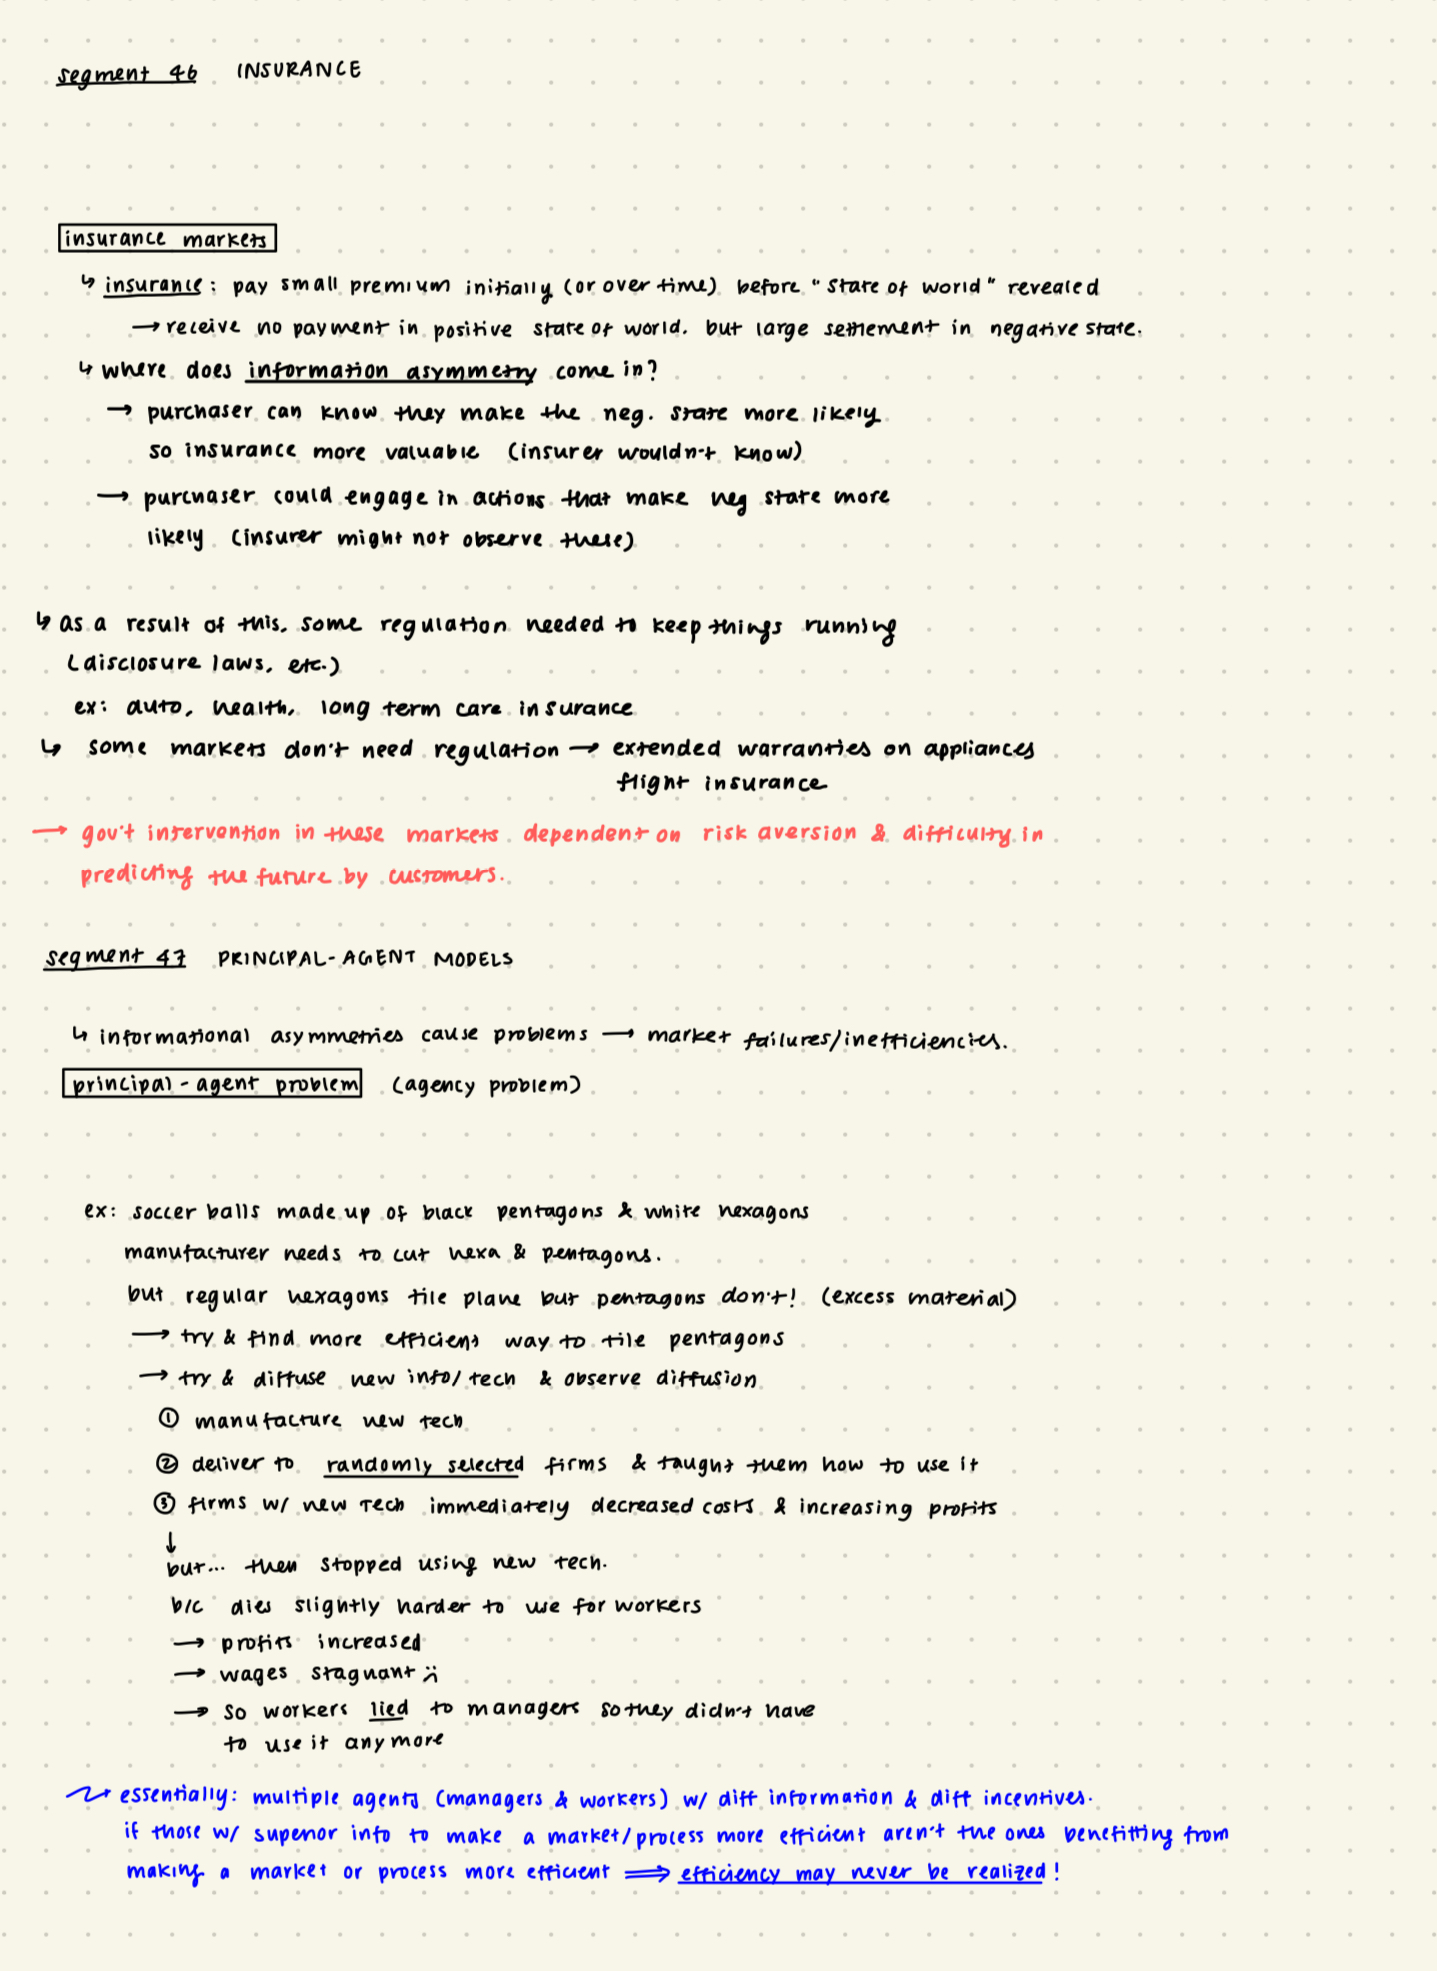 segment 46 INSURANCE
insurance markets
↳ insurance: pay small premium initially (or over time) before "state of world" revealed
→ receive no payment in positive state of world, but large settlement in negative state.
↳ where does information asymmetry come in?
→ purchaser can know they make the neg. state more likely
so insurance more valuable (insurer wouldn't know)
→ purchaser could engage in actions that make neg state more
likely (insurer might not observe these)
↳ as a result of this, some regulation needed to keep things running
(disclosure laws, etc.)
ex: auto, health, long term care insurance
↳ some markets don't need regulation → extended warranties on appliances
flight insurance
→ gov't intervention in these markets dependent on risk aversion & difficulty in
predicting the future by customers.
segment 47 PRINCIPAL-AGENT MODELS
↳ informational asymmetries cause problems → market failures/inefficiencies.
principal-agent problem (agency problem)
ex: soccer balls made up of black pentagons & white hexagons
manufacturer needs to cut hexa & pentagons.
but regular hexagons tile plane but pentagons don't! (excess material)
→ try & find more efficient way to tile pentagons
→ try & diffuse new info/tech & observe diffusion
① manufacture new tech
② deliver to randomly selected firms & taught them how to use it
③ firms w/ new tech immediately decreased costs & increasing profits
↓
but... then stopped using new tech.
b/c dies slightly harder to use for workers
→ profits increased
→ wages stagnant :(
→ so workers lied to managers so they didn't have
to use it anymore
essentially: multiple agents (managers & workers) w/ diff information & diff incentives.
if those w/ superior info to make a market/process more efficient aren't the ones benefitting from
making a market or process more efficient ⟹ efficiency may never be realized!